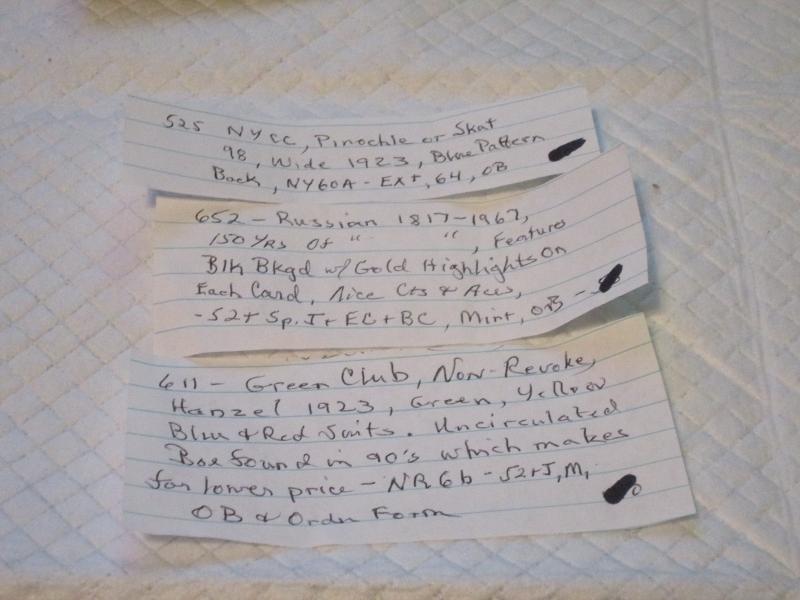 525 NYCC, Pinochle or Skat
98, Wide 1923, Blue Pattern
Back, NY60A - EX+, 64, OB
652 - Russian 1817-1967,
150 YRS OF " ", Features
Blk Bkgd w/ Gold Highlights On
Each Card, Nice Cts & Aces,
-52+ Sp. J + EC + BC, Mint, OB -
611 - Green Club, Non-Revoke,
Hanzel 1923, Green, Yellow
Blue & Red Suits. Uncirculated
Box found in 90's which makes
for lower price - NR6b - 52+J, M,
OB & Order Form